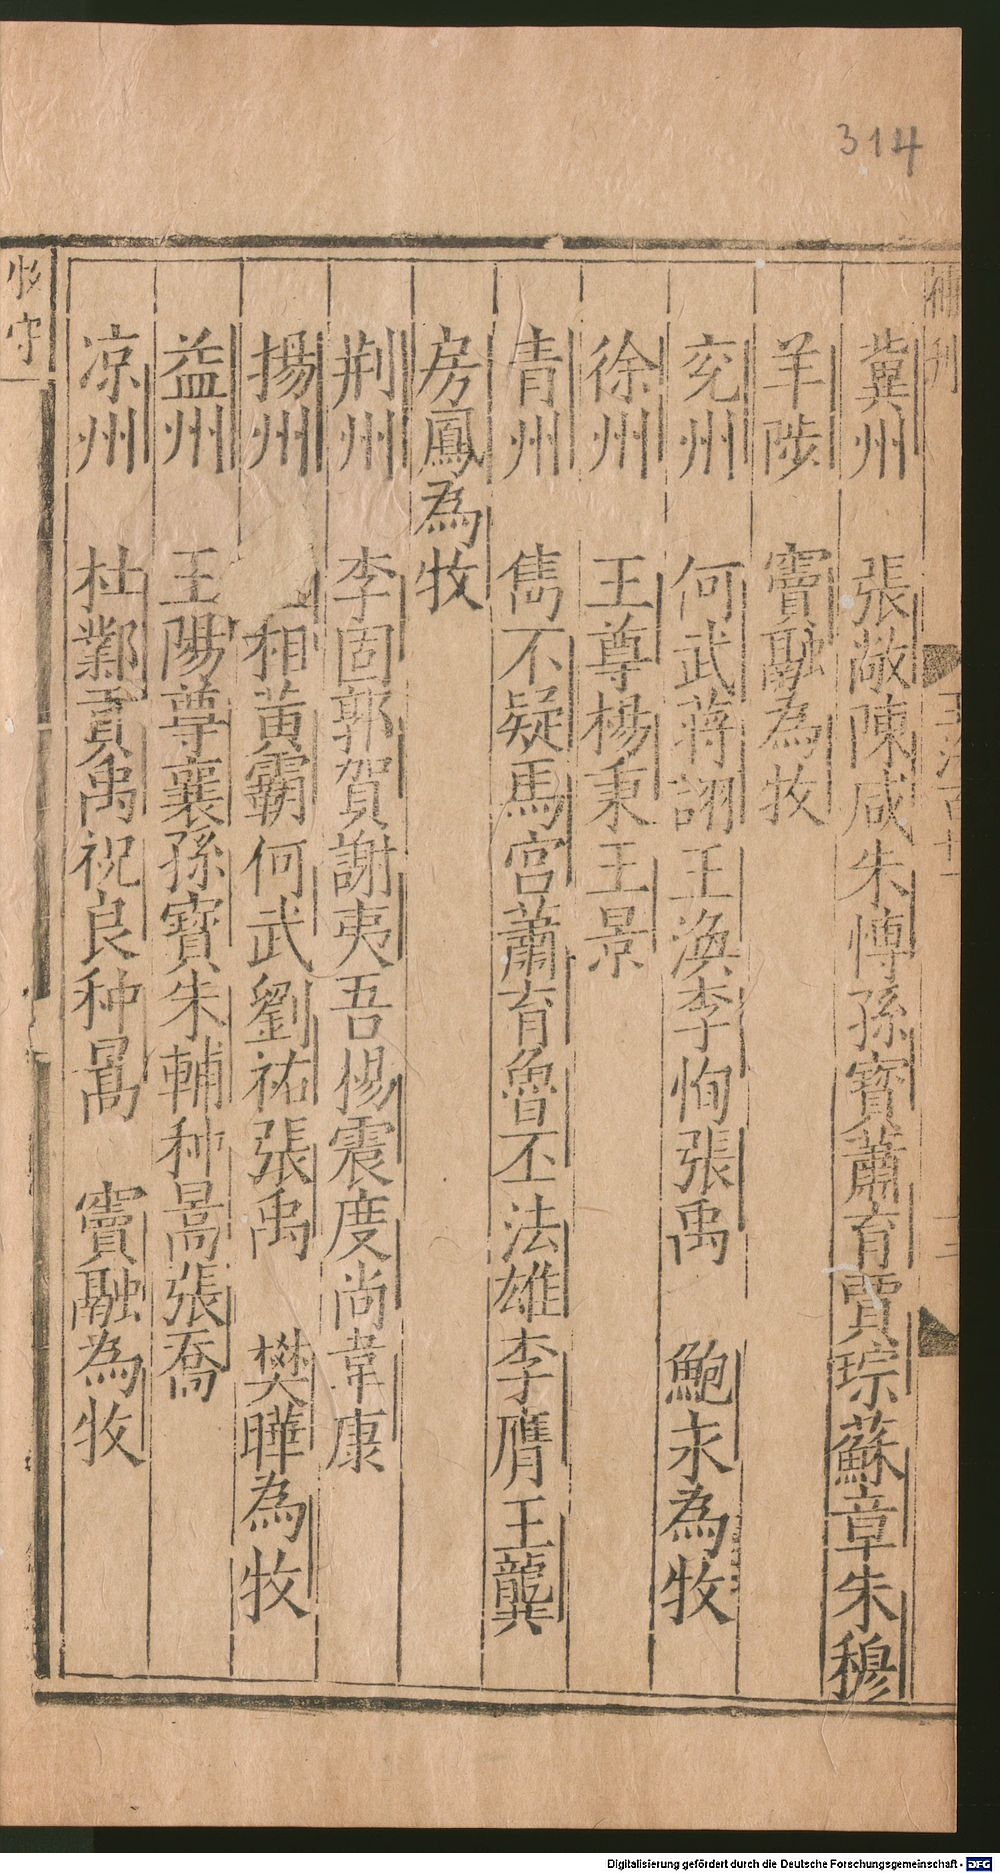 314
冀州　張敞陳咸朱愽孫寳蕭育賈琮蘇章朱穆
羊陟　竇融為牧
兗州　何武蔣詡王渙李恂張禹　鮑永為牧
徐州　王尊楊秉王景
青州　雋不疑馬宫蕭育魯丕法雄李膺王龔
房鳳為牧
荆州　李固郭賀謝夷吾楊震度尚韋康
揚州　相黄霸何武劉祐張禹　樊曄為牧
益州　王陽尊襄孫寳朱輔种暠張喬
凉州　杜鄴貢禹祝良种暠　竇融為牧
守
Digitalisierung gefördert durch die Deutsche Forschungsgemeinschaft - DFG